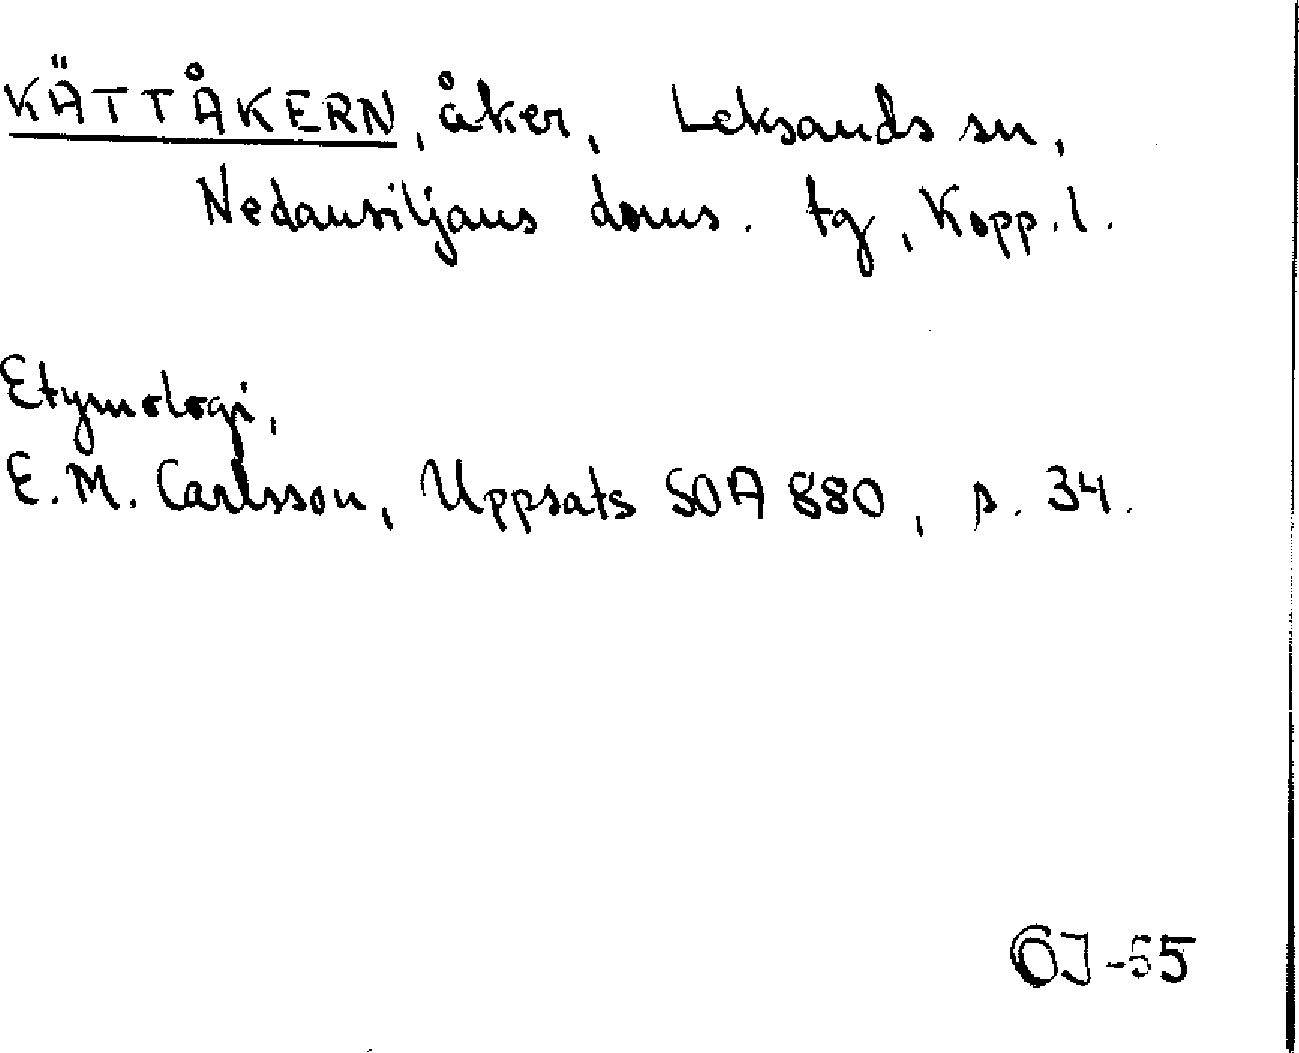 KÄTTÅKERN, åker, Leksands sn,
Nedansiljans doms. tg, Kopp. l.
Etymologi,
E. M. Carlsson, Uppsats SOA 880, s. 34.
GJ-55